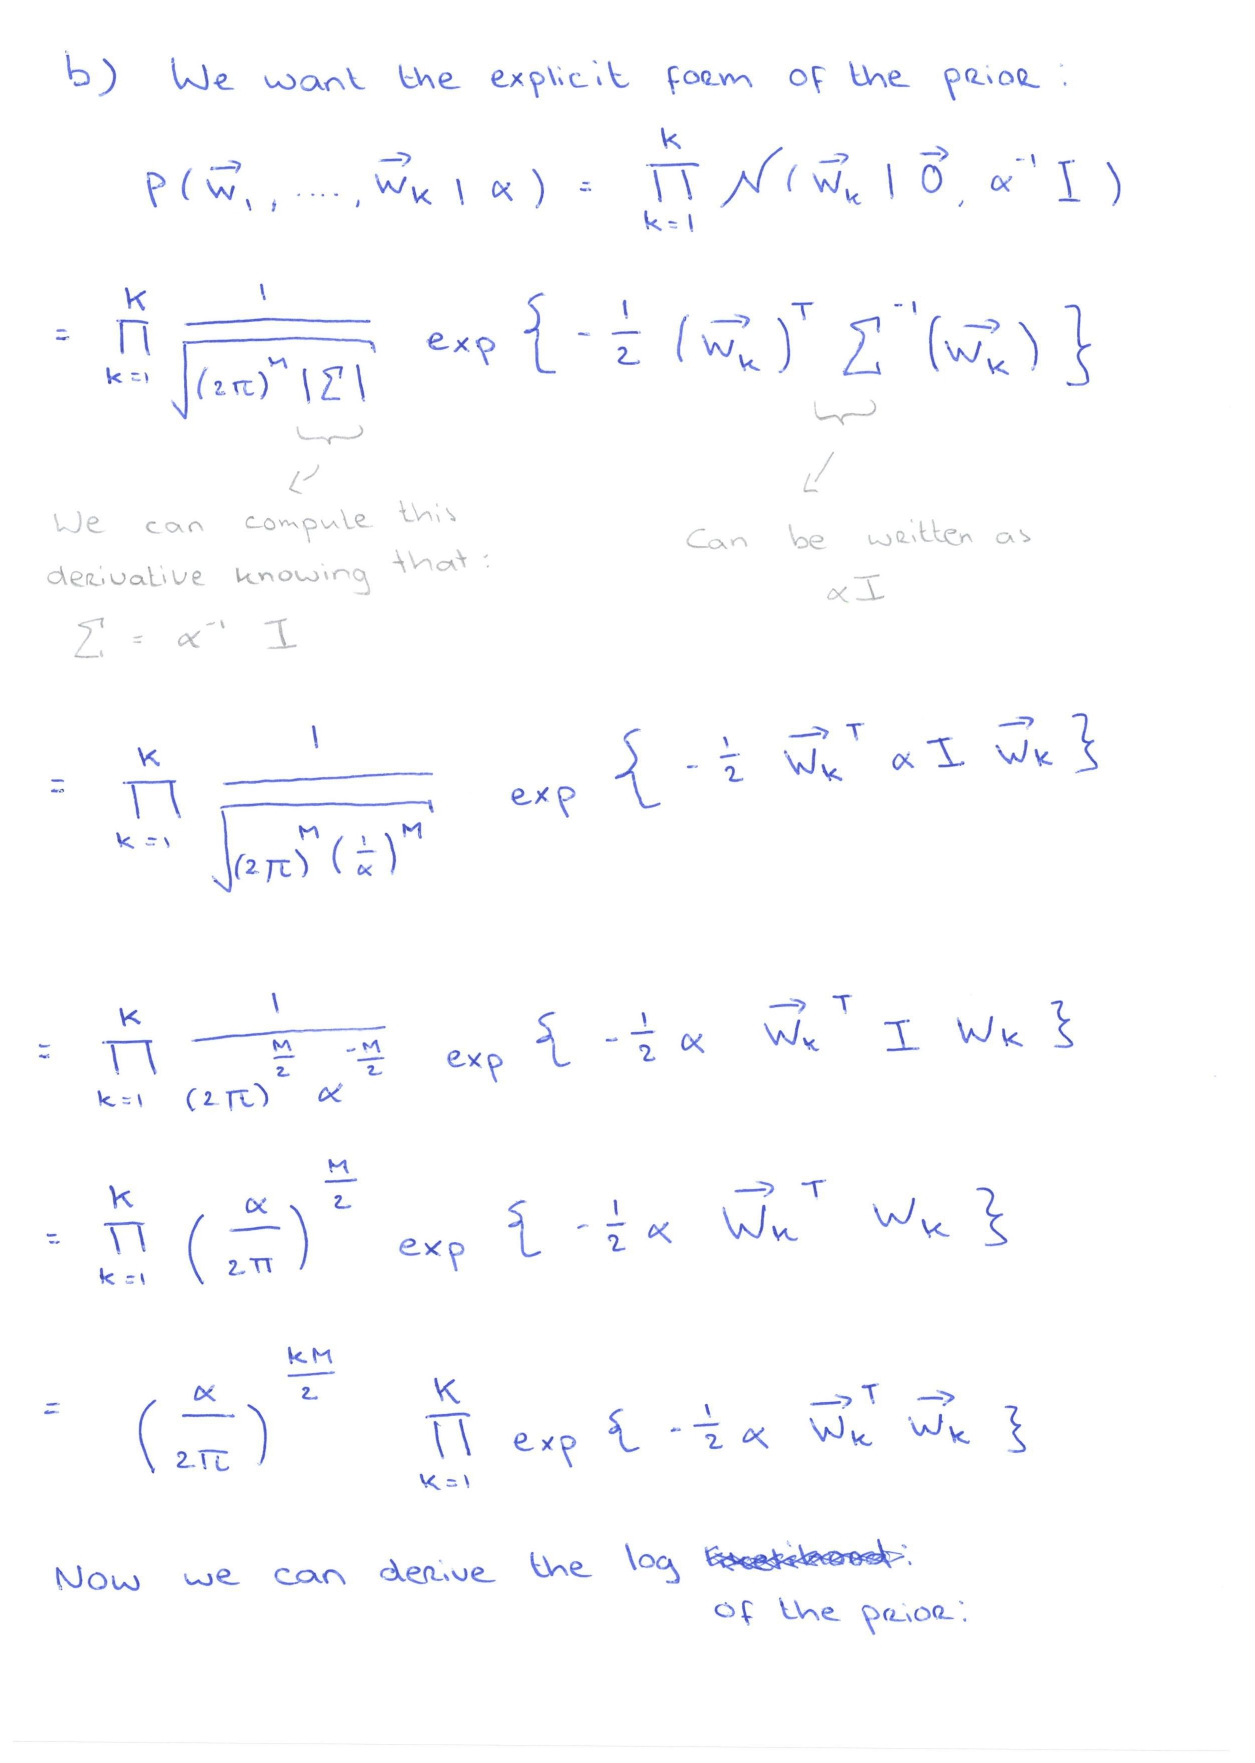 b) We want the explicit form of the prior :
P(w⃗₁, ...., w⃗_K | α) = ∏_{k=1}^{K} N(w⃗_k | 0⃗, α⁻¹ I)
= ∏_{k=1}^{K} 1/√((2π)^M |Σ|) exp { -1/2 (w⃗_k)^T Σ⁻¹ (w⃗_k) }
We can compute this
derivative knowing that :
Σ = α⁻¹ I
Can be written as
αI
= ∏_{k=1}^{K} 1/√((2π)^M (1/α)^M) exp { -1/2 w⃗_k^T α I w⃗_k }
= ∏_{k=1}^{K} 1/((2π)^{M/2} α^{-M/2}) exp { -1/2 α w⃗_k^T I w_k }
= ∏_{k=1}^{K} (α/2π)^{M/2} exp { -1/2 α w⃗_k^T w_k }
= (α/2π)^{KM/2} ∏_{k=1}^{K} exp { -1/2 α w⃗_k^T w⃗_k }
Now we can derive the log
of the prior :